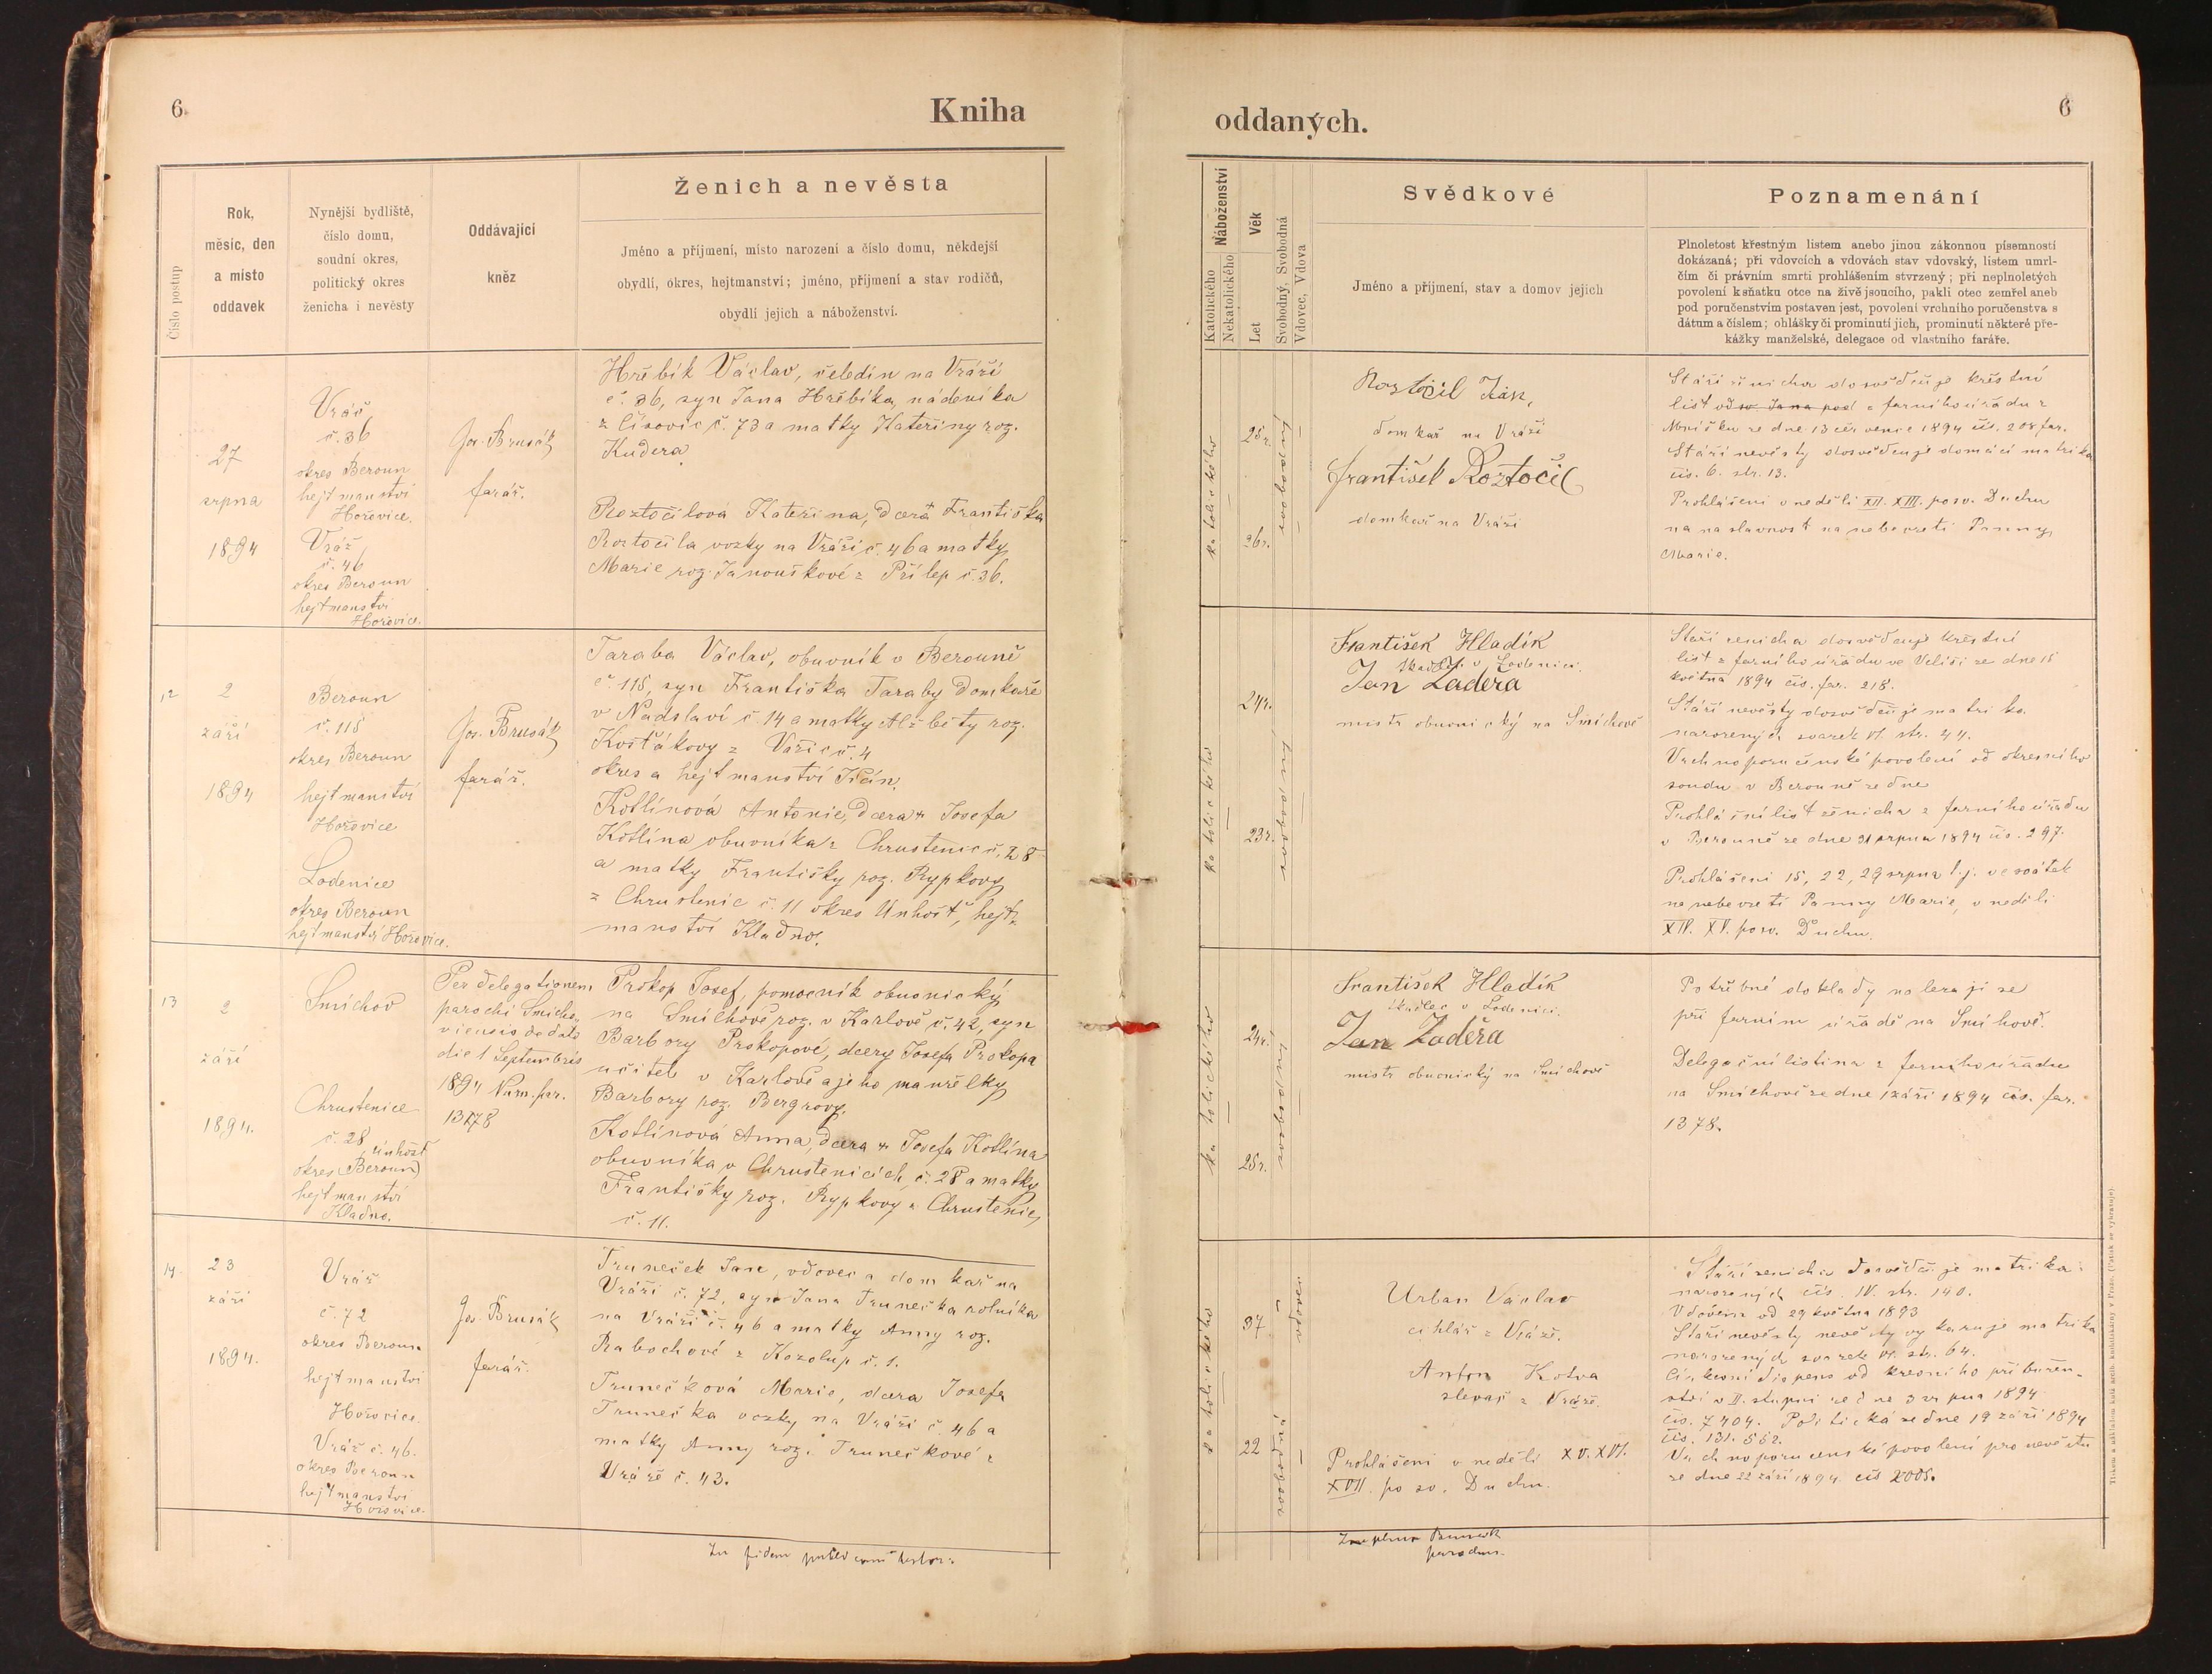 6.
Kniha
Číslo postup
Rok,
měsíc, den
a místo
oddavek
Nynější bydliště,
číslo domu,
soudní okres,
politický okres
ženicha i nevěsty
Oddávající
kněz
Ženich a nevěsta
Jméno a příjmení, místo narození a číslo domu, někdejší
obydlí, okres, hejtmanství; jméno, příjmení a stav rodičů,
obydlí jejich a náboženství.
27
srpna
1894
Vráž
č. 36
okres Beroun
hejtmanství
Hořovice.
Vráž
č. 46
okres Beroun
hejtmanství
Hořovice.
Jos. Brusák
farář.
Hřebík Václav, čeledín na Vráži
č. 36, syn Jana Hřebíka, nádeníka
z Lisovic č. 73 a matky Kateřiny roz.
Kudera
Roztočilova Kateřina, dcera Františka
Roztočila vozky na Vráži č. 46 a matky
Marie roz. Janouškové z Přílep č. 36.
12
2
září
1894
Beroun
č. 115
okres Beroun
hejtmanství
Hořovice
Lodenice
okres Beroun
hejtmanství Hořovice.
Jos. Brusák
farář.
Taraba Václav, obuvník v Berouně
č. 115, syn Františka Taraby domkaře
v Nadslaví č. 14 a matky Alžběty roz.
Košťákovy z č. 4
okres a hejtmanství Jičín.
Kotlínová Antonie, dcera Josefa
Kotlína obuvníka z Chrustenic č. 28
a matky Františky roz. Rypkovy
z Chrustenic č. 11 okres Unhošť, hejt-
manství Kladno.
13
2
září
1894.
Smíchov
Chrustenice
č. 28
Unhošť
okres (Beroun)
hejtmanství
Kladno.
Per delegationem
parochi Smicho-
viensis de dato
die 1 Septembris
1894 Num. par.
1378
Prokop Josef, pomocník obuvnický
na Smíchově, roz. v Karlově č. 42, syn
Barbory Prokopové, dcery Josefa Prokopa
učitele v Karlově a jeho manželky
Barbory roz. Bergrovy.
Kotlínová Anna, dcera Josefa Kotlína
obuvníka v Chrustenicích, č. 28 a matky
Františky roz. Rypkovy z Chrustenic
č. 11.
14.
23
září
1894.
Vráž
č. 72
okres Beroun
hejtmanství
Hořovice.
Vráž č. 46.
okres Beroun
hejtmanství
Hořovice.
Jos. Brusák
farář.
Truneček Jan, vdovec a domkař na
Vráži č. 72, syn Jana Trunečka rolníka
na Vráži č. 46 a matky Anny roz.
Rabochové z Kozolup č. 1.
Trunečková Marie, dcera Josefa
Trunečka vozky na Vráži č. 46 a
matky Anny roz. Trunečkové z
Vráže č. 43.
In fidem
oddaných.
6
Náboženství
Katolického
Nekatolického
Věk
Let
Svobodný, Svobodná
Vdovec, Vdova
Svědkové
Jméno a příjmení, stav a domov jejich
Poznamenání
Plnoletost křestným listem anebo jinou zákonnou písemností
dokázaná; při vdovcích a vdovách stav vdovský, listem umrl-
čím či právním smrti prohlášením stvrzený; při neplnoletých
povolení k sňatku otce na živě jsoucího, pakli otec zemřel aneb
pod poručenstvím postaven jest, povolení vrchního poručenstva s
dátum a číslem; ohlášky či prominutí jich, prominutí některé pře-
kážky manželské, delegace od vlastního faráře.
katolického
25 r.
26 r.
svobodný
Roztočil Jan,
domkař na Vráži
František Roztočil
domkař na Vráži
Stáří ženicha dosvědčuje křestní
list od sv. Jana pod z farního úřadu z
Mníšku ze dne 13 července 1894 čís. 208 far.
Stáří nevěsty dosvědčuje domácí matrika
čís. 6. str. 13.
Prohlášení v neděli XII. XIII. po sv. Duchu
na slavnost na nebevzetí Panny
Marie.
katolického
24 r.
23 r.
svobodný
František Hladík
tkadlec v Lodenici.
Jan Zaděra
mistr obuvnický na Smíchově
Stáří ženicha dosvědčuje křestní
list z farního úřadu ve Veliši ze dne 15
května 1894 čís. far. 218.
Stáří nevěsty dosvědčuje matrika
narozených svazek VI. str. 44.
Vrchnoporučenské povolení od okresního
soudu v Berouně ze dne
Prohlášní list ženicha z farního úřadu
v Berouně ze dne 31 srpna 1894 čís. 297.
Prohlášení 15, 22, 29 srpna t. j. ve svátek
na nebevzetí Panny Marie, v neděli
XIV. XV. po sv. Duchu.
katolického
24 r.
25 r.
svobodný
František Hladík
tkadlec v Lodenici.
Jan Zaděra
mistr obuvnický na Smíchově
Potřebné doklady nalezají se
při farním úřadě na Smíchově.
Delegační listina z farního úřadu
na Smíchově ze dne 1 září 1894 čís. far.
1378.
katolického
37
22
vdovec
svobodná
Urban Václav
cihlář z Vráže.
Anton Kotva
slevač z Vráže.
Prohlášení v neděli XV. XVI.
XVII. po sv. Duchu.
Stáří ženicha dosvědčuje matrika
narozených čís. IV. str. 140.
Vdovcem od 29 května 1893
Stáří nevěsty nevěsty vykazuje matrika
narozených svazek VI. str. 64.
Církevní dispens od krevního příbuzen-
ství v II. stupni ze dne 3 srpna 1894
čís. 7404. Politická ze dne 19 září 1894
čís. 131.552.
Vrchnoporučenské povolení pro nevěstu
ze dne 22 září 1894 čís 2005.
Tiskem a nákladem knížecí arcib. knihtiskárny v Praze. (Patisk se vyhrazuje).